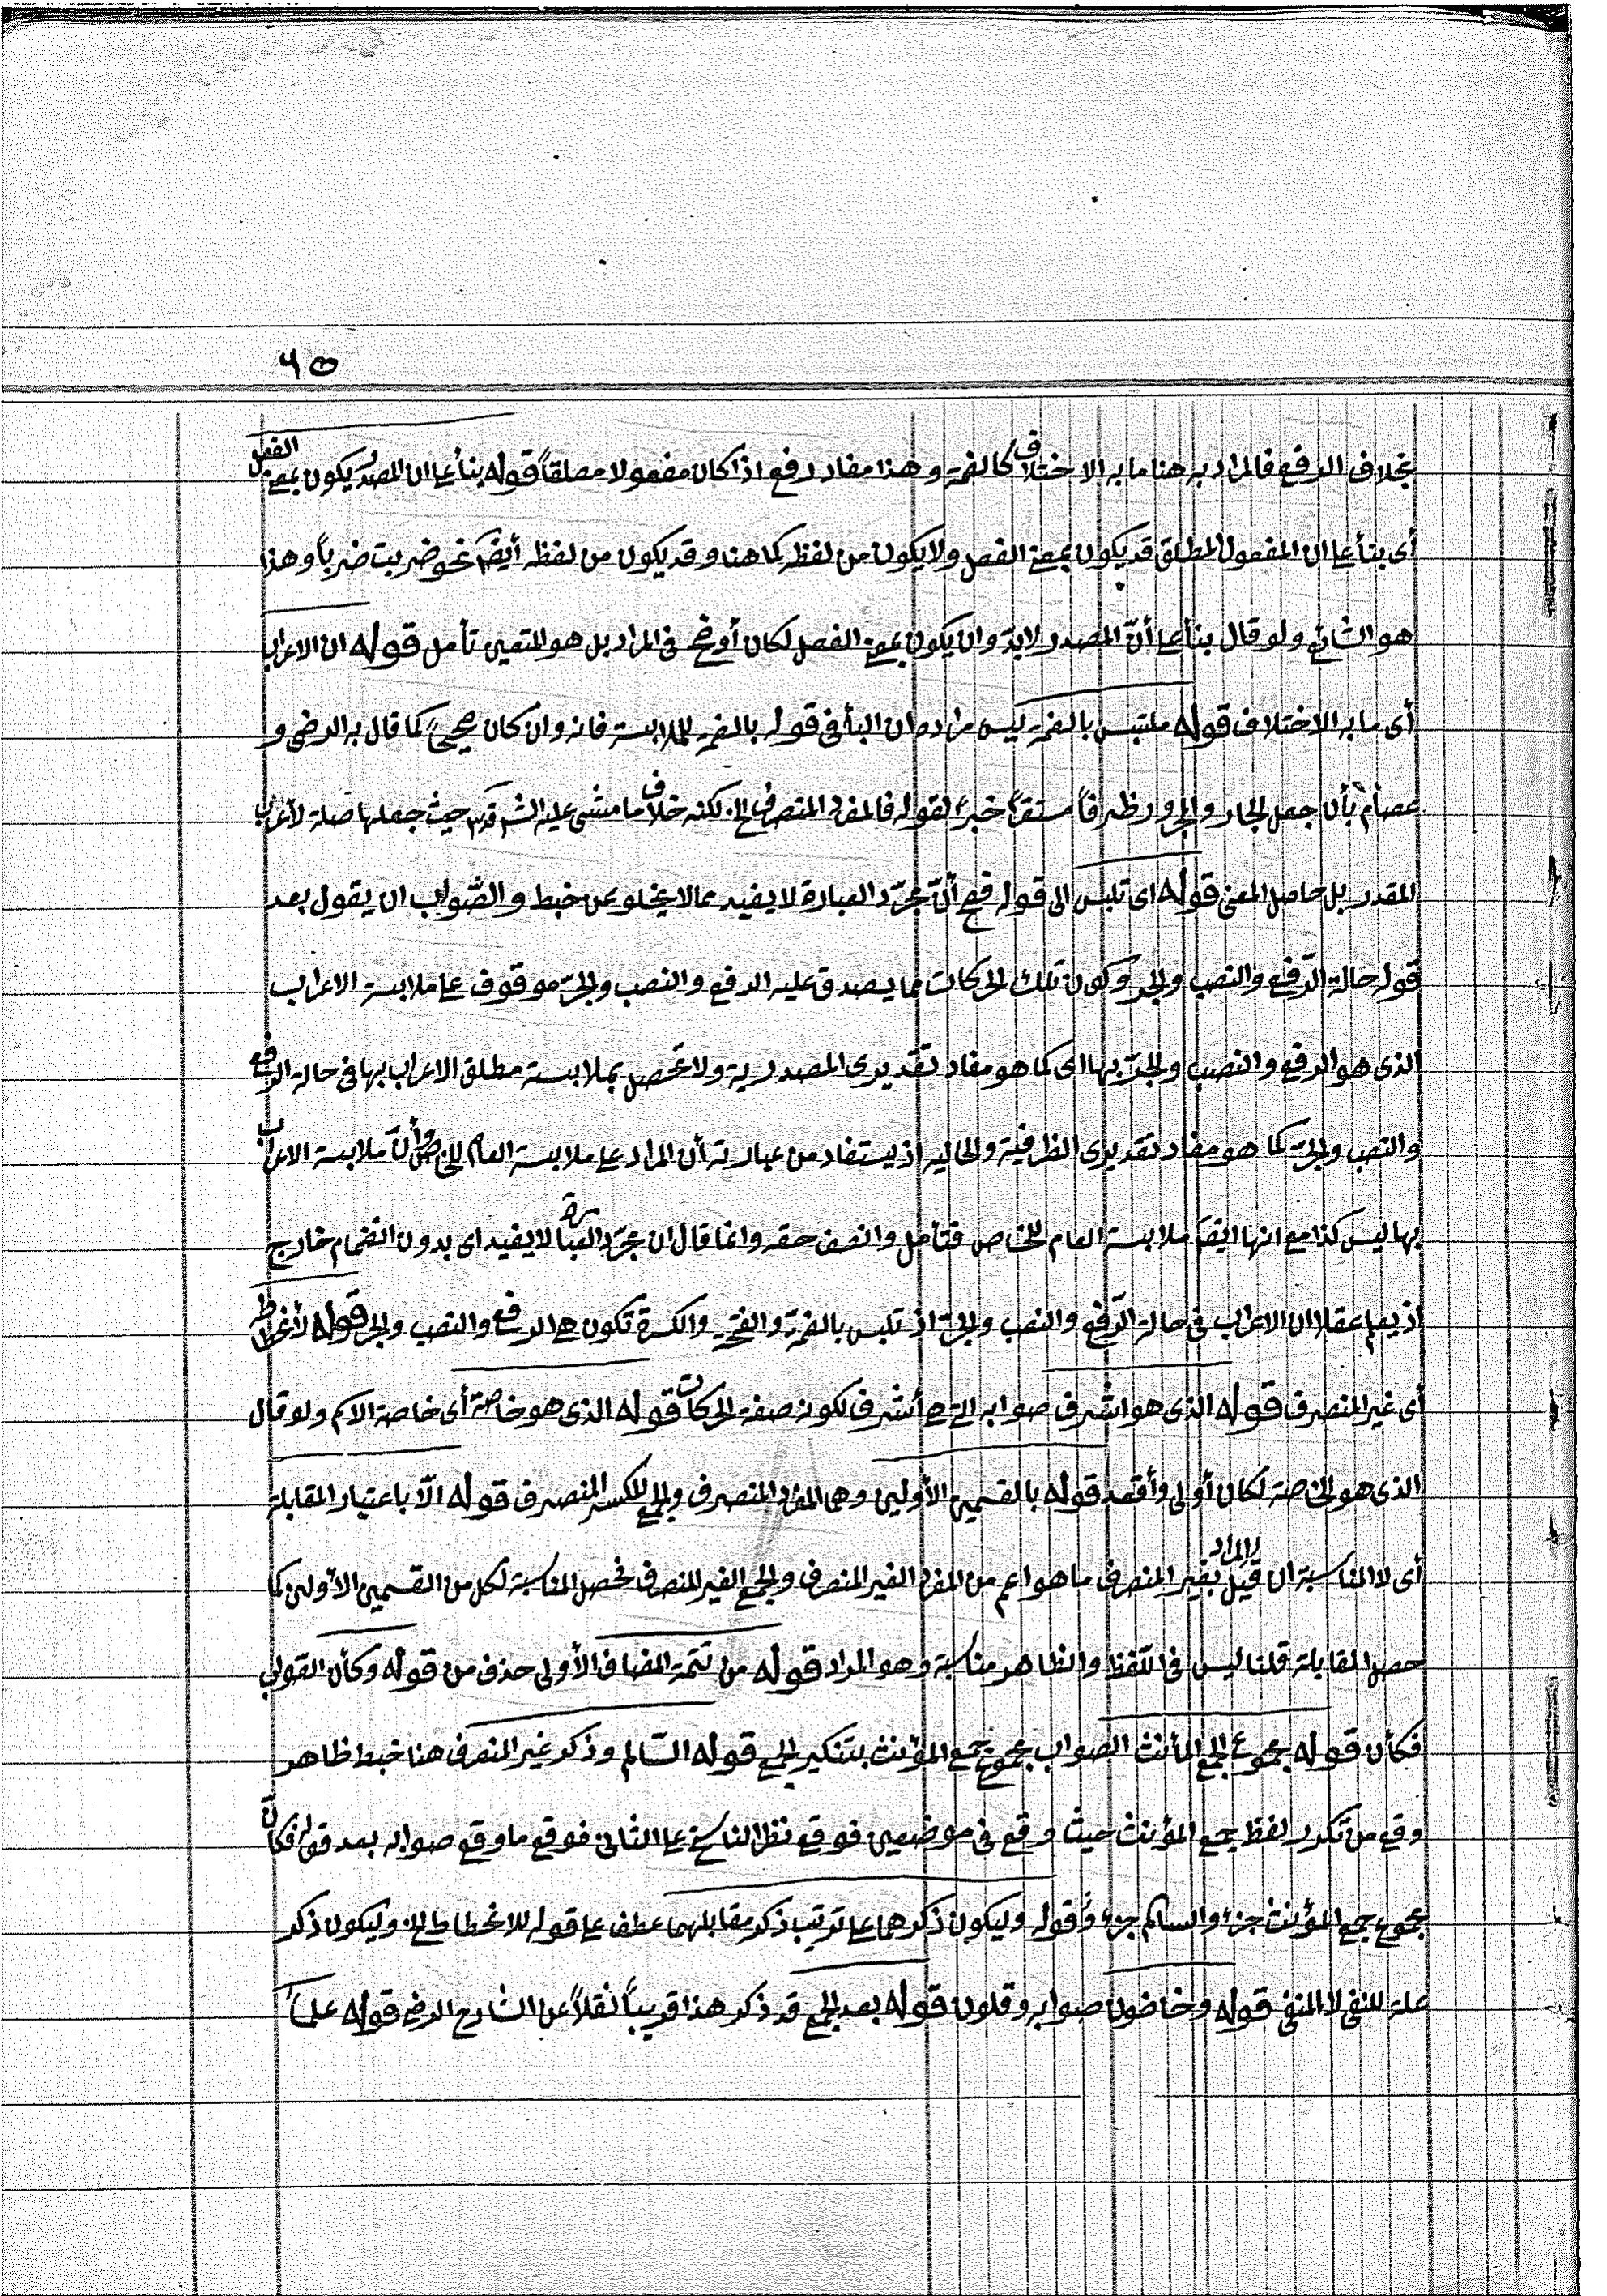 ٦٥
بخلاف الرفع فالمراد به هنا ما به الاختلاف كالضمة وهذا مفاد رفع اذا كان مفعولا مطلقاً قوله بنأ على ان المصدر يكون بمعنى الفعل
أى بنأ على ان المفعول المطلق قد يكون بمعنى الفعل ولا يكون من لفظه كما هنا وقد يكون من لفظه أيضً نحو ضربت ضرباً وهذا
هو الشائع ولو قال بنأ على أنّ المصدر لابدّ وان يكون بمعنى الفعل لكان أوضح فى المراد بل هو المتعين تأمل قوله ان الاعراب
أى ما به الاختلاف قوله ملتبس بالضمة ليس مراده ان البأ فى قوله بالضمة للملابسة فانه وان كان صحيحاً كما قال به الرضى و
عصام بأن جعل الجار والمجرور ظرفاً مستقراً خبراً لقوله فالمفرد المنصرف الخ لكنه خلاف ما مشى عليه الش قدس حيث جعلها صلة لأعراب
المقدر بل حاصل المعنى قوله اى تلبس الى قوله رفع أنّ مجرّد العبارة لا يفيد مما لا يخلو عن خبط والصّواب ان يقول بعد
قوله حالة الرّفع والنصب والجر وكون تلك الحركات مما يصدق عليه الرفع والنصب والجرّ موقوف على ملابسة الاعراب
الذى هو الرفع والنصب والجرّ بها اى كما هو مفاد تقديرى المصدرية ولا تحصل بملابسة مطلق الاعراب بها فى حالة الرفع
والنصب والجرّ كما هو مفاد تقديرى الظرفية والحاليه اذ يستفاد من عبارته أن المراد على ملابسة العام للخاص وأنّ ملابسة الاعراب
بها ليس كذا مع انها ايضً ملابسة العام للخاص فتأمل وانصف حقه وانما قال ان مجرّد العبارة لا يفيد اى بدون انضمام خارج
اذ يعلم عقلا ان الاعراب فى حالة الرّفع والنصب والجرّ اذ تلبس بالضمة والفتحة والكسرة تكون هى الرفع والنصب والجر قوله لأنحطاط
أى غير المنصرف قوله الذى هو اشرف صوابه التى هى أشرف لكونه صفة الحركات قوله الذى هو خاصة أى خاصة الاسم ولو قال
الذى هو الخاصة لكان أولى وأقصد قوله بالقسمين الأولين وهى المفرد المنصرف والجمع المكسر المنصرف قوله الّا باعتبار المقابلة
أى لا المناسبة ان قيل المراد بغير المنصرف ما هو اعم من المفرد الغير المنصرف والجمع الغير المنصرف فحصل المناسبة لكل من القسمين الاولين كما
حصل المقابلة قلنا ليس فى اللّفظ والظاهر مناسبة وهو المراد قوله من تتمة المضاف الأولى حذف من قوله وكأن القواب
فكأن قوله مجموع الجمع المأنث الصواب مجموع جمع المؤنث بتنكير الجمع قوله السّالم وذكر غير المنصرف هنا خبط ظاهر
وقع من تكرر لفظ جمع المؤنث حيث وقع فى موضعين فوقع نظر الناسخ على الثانى فوقع ما وقع صوابه بعد قوله فكأنّ
مجموع جمع المؤنث جزء والسالم جزء وقوله وليكون ذكرهما على ترتيب ذكر مقابلهما عطف على قوله للانحطاط الخ وليكون ذكر
علة للنفى لا المنفى قوله وخاضون صوابه وقلون قوله بعد الجمع قد ذكر هذا قريباً نقلاً عن الشارح الرضى قوله علماً